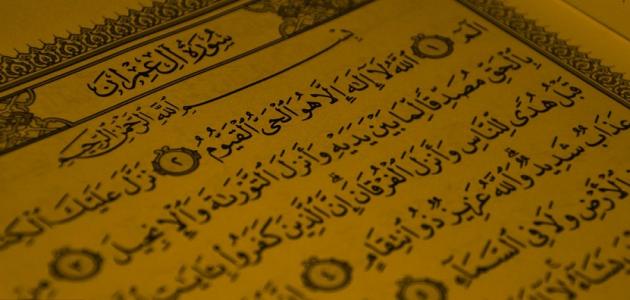 سُورَةُ آلِ عِمْرَانَ
بِسْمِ ٱللَّهِ ٱلرَّحْمَـٰنِ ٱلرَّحِيمِ
الٓمٓ ١ ٱللَّهُ لَآ إِلَـٰهَ إِلَّا هُوَ ٱلْحَىُّ ٱلْقَيُّومُ ٢ نَزَّلَ عَلَيْكَ
بِٱلْحَقِّ مُصَدِّقًا لِّمَا بَيْنَ يَدَيْهِ وَأَنزَلَ ٱلتَّوْرَىٰةَ وَٱلْإِنجِيلَ ٣
قَبْلُ هُدًى لِّلنَّاسِ وَأَنزَلَ ٱلْفُرْقَانَ إِنَّ ٱلَّذِينَ كَفَرُوا۟ بِـَٔايَـٰتِ
عَذَابٌ شَدِيدٌ وَٱللَّهُ عَزِيزٌ ذُو ٱنتِقَامٍ ٤
ٱلْأَرْضِ وَلَا فِى ٱلسَّمَآءِ ٥